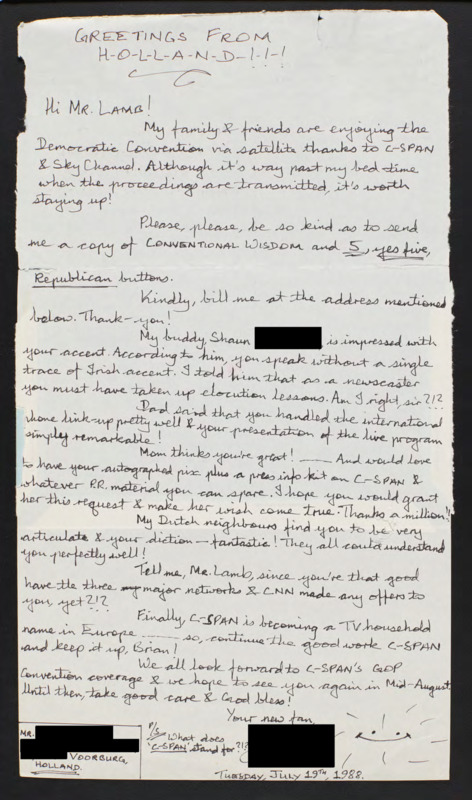 GREETINGS FROM
H-O-L-L-A-N-D-!-!-!
Hi Mr. LAMB!
My family & friends are enjoying the
Democratic Convention via satellite thanks to C-SPAN
& Sky Channel. Although it's way past my bed-time
when the proceedings are transmitted, it's worth
staying up!
Please, please, be so kind as to send
me a copy of CONVENTIONAL WISDOM and 5, yes five,
Republican buttons.
Kindly, bill me at the address mentioned
below. Thank-you!
My buddy, Shaun is impressed with
your accent. According to him, you speak without a single
trace of Irish accent. I told him that as a newscaster
you must have taken up elocution lessons. Am I right, sir?!?
Dad said that you handled the international
phone link-up pretty well & your presentation of the live program
simply remarkable!
Mom thinks you're great! — And would love
to have your autographed pix plus a press info kit on C-SPAN &
whatever P.R. material you can spare. I hope you would grant
her this request & make her wish come true. Thanks a million!
My Dutch neighbours find you to be very
articulate & your diction — fantastic! They all could understand
you perfectly well!
Tell me, Mr. Lamb, since you're that good
have the three major networks & CNN made any offers to
you, yet?!?
Finally, C-SPAN is becoming a TV household
name in Europe — so, continue the good work C-SPAN
and keep it up, Brian!
We all look forward to C-SPAN'S GOP
Convention coverage & we hope to see you again in Mid-August
Until then, take good care & God bless!
Your new fan,
MR.
VOORBURG,
HOLLAND.
P/S What does
'C-SPAN' stand for?!?
TUESDAY, JULY 19TH, 1988.